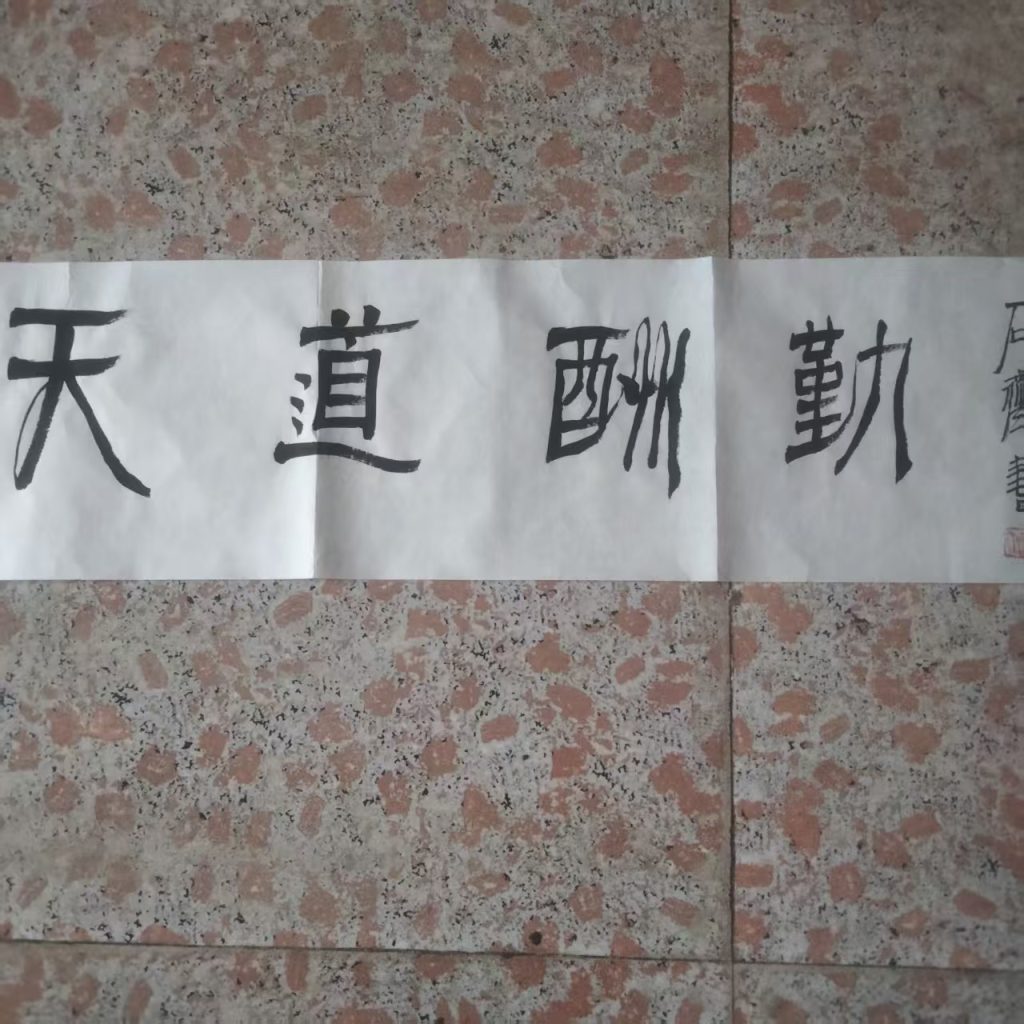 天道酬勤
石齋書